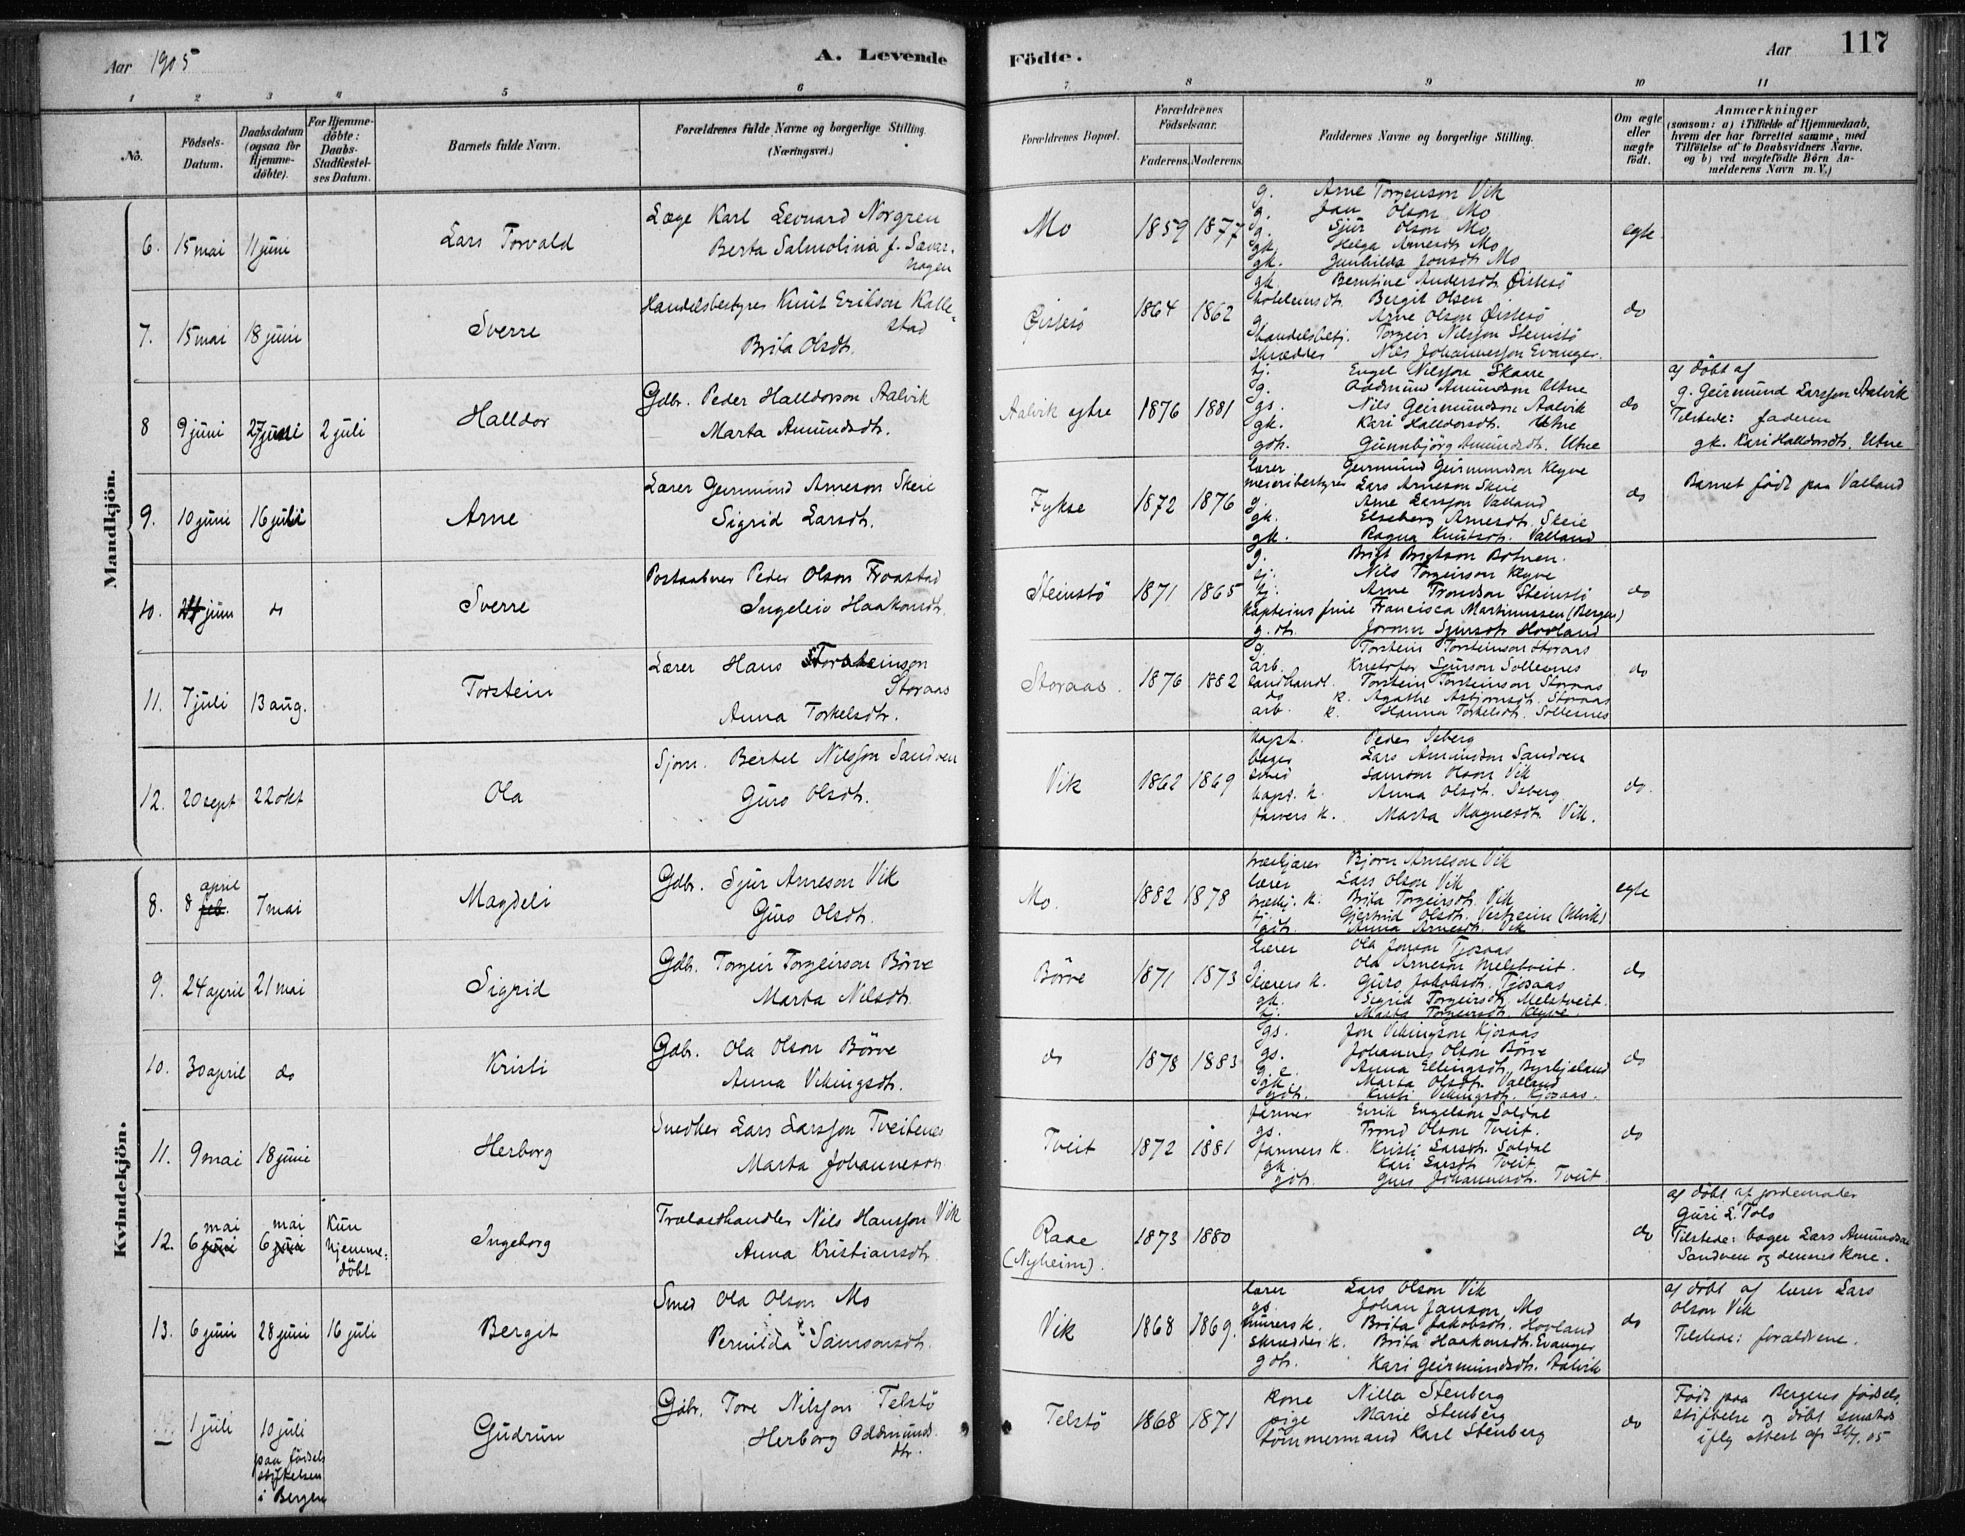 Aar 1905
A. Levende
Födte.
Aar
117
1 2 3 4 5 6 7 8 9 10 11
No.
Födsels-
Datum.
Daabsdatum
(ogsaa for
Hjemme-
döbte).
For Hjemme-
döbte:
Daabs-
Stadfestel-
ses Datum.
Barnets fulde Navn.
Forældrenes fulde Navne og borgerlige Stilling.
(Næringsvei.)
Forældrenes Bopæl.
Forældrenes
Födselsaar.
Faderens. Moderens.
Faddernes Navne og borgerlige Stilling.
Om ægte
eller
uægte
födt.
Anmærkninger
(saasom: a) i Tilfælde af Hjemmedaab,
hvem der har forrettet samme, med
Tilföielse af to Daabsvidners Navne.
og b) ved uægtefödte Börn An-
melderens Navn m. V.)
Mandkjön.
6. 15 mai 11 juni
Lars Torvald
Læge Karl Leonard Norgren
Berta Salmolina f. Savar-
hagen
Mo
1859 1877
g. Arne Torgeirson Vik
g. Jan Olson Mo
g. Sjur Olson Mo
gk. Helga Arnesdt. Mo
gk. Gunhilda Jonsdt. Mo
egte
7. 15 mai 18 juni
Sverre
Handelsbestyrer Knut Erikson Kalle-
stad
Brita Olsdt.
Öistesö
1864 1862
gk. Berntine Andersdt. Öistesö
Bergit Olsen
g. Arne Olson Öistesö
handelsbetj. Torgeir Nilsson Steinstö
skrædder Nils Johannesson Evanger.
do
8 9 juni 27 juni 2 juli
Halldor
Gdbr. Peder Halldorson Aalvik
Marta Amundsdt.
Aalvik ytre
1876 1881
tj. Engel Nilsson Skaare
g. Oddmund Amundson Utne
gs. Nils Geirmundson Aalvik
gk. Kari Halldorsdt. Utne
gdt. Gunnbjörg Amundsdt. Utne
do
a) döbt af
g. Geirmund Larsson Aalvik
Tilstede: faderen
gk. Kari Halldorsdt. Utne
9. 10 juni 16 juli
Arne
Lærer Geirmund Arneson Skeie
Sigrid Larsdt.
Fykse
1872 1876
lærer Geirmund Geirmundson Klyve
meieribestyrer Lars Arneson Skeie
g. Arne Larsson Valland
gk. Elseberg Arnesdt. Skeie
gk. Ragna Knutsdt. Valland
do
Barnet födt paa Valland
10. juni do
Sverre
Postaabner Peder Olson Froastad
Ingeleiv Haakonsdt.
Steinstö
1871 1865
g. Brigt Brigtson Botnen.
tj. Nils Torgeirson Klyve
tj. Arne Trondson Steinstö
kapteins frue Francisca Martinussen (Bergen)
g. dt. Sjursdt. Hovland
do
11. 7 juli 13 aug.
Torstein
Lærer Hans Torsteinson
Storaas
Anna Torkelsdtr.
Storaas.
1876 1882
g. Torstein Torsteinson Storaas
arb. Kristofer Sjurson Sollesnes
landhandl. Torstein Torsteinson Storaas
do k. Agathe Asbjornsdt. Storaas
arb. k. Hanna Torkelsdt. Sollesnes
do
12. 20 sept 22 okt
Ola
Sjom. Bertel Nilsson Sandven
Guro Olsdt.
Vik
1862 1869
kapt. Peder Isberg
bager Lars Amundson Sandven
smed Samson Olson Vik
kapt. k. Anna Olsdt. Isberg
farvers k. Marta Magnesdt. Vik.
do
Kvindekjön.
8. 8 april feb. 7 mai
Magdeli
Gdbr. Sjur Arneson Vik
Guro Olsdt.
Mo.
1882 1878
Bjorn Arneson Vik
lærer Lars Olson Vik
k. Brita Torgeirsdt. Vik
tj. Gjertrud Olsdt. Vestreim (Ulvik)
gdt. Anna Arnesdt. Vik
egte
9. 24 april 21 mai
Sigrid
Gdbr. Torgeir Torgeirson Börve
Marta Nilsdt.
Börve
1871 1873
lærer Ola Jonson Tjosaas
g. Ola Arneson Melstveit.
lærers k. Guro Jakobsdt. Tjosaas
gk. Sigrid Torgeirsdt. Melstveit.
tj. Marta Torgeirsdt. Klyve.
do
10. 30 april do
Kristi
Gdbr. Ola Olson Börve
Anna Vikingsdt.
do
1878 1883
gs. Jon Vikingson Kjosaas
gs. Johannes Olson Börve
g. e. Anna Ellingsdt. Byrkjeland
gk. Marta Olsdt. Valland
gdt. Kristi Vikingsdt. Kjosaas.
do
11. 9 mai 18 juni
Herborg
Snedker Lars Larsson Tveitenes
Marta Johannesdt
Tveit
1872 1881
farver Eirik Engelson Soldal
gs. Trond Olson Tveit.
farvers k. Kristi Larsdt. Soldal
gk. Kari Larsdt. Tveit
gdt. Guro Johannesdt. Tveit
do
12. mai 6 juni mai 6 juni Kun
hjemme-
döbt
Ingeborg
Trælasthandler Nils Hansson Vik
Anna Kristiansdt.
Raae
(Nyheim).
1873 1880
do
a) döbt af jordemoder
Guri L. Tolo
Tilstede: bager Lars Amundson
Sandven og dennes kone.
13. 6 juni 28 juni 16 juli
Bergit
Smed Ola Olson Mo
Pernilda Samsonsdt.
Vik
1868 1869.
lærer Lars Olson Vik
gs. Johan Janson Mo
murers k. Brita Jakobsdt. Hovland
skrædder k. Brita Haakonsdt. Evanger
gdt. Kari Geirmundsdt. Aalvik
do
a) döbt af lærer Lars
Olson Vik
Tilstede: forældrene.
14. 1 juli 10 juli
paa födsels
stiftelsen
i Bergen
Gudrun
Gdbr. Tore Nilsson Telstö
Herborg Oddmunds-
dtr.
Telstö
1868 1871
kone Nilla Stenberg
pige Marie Stenberg
tömmermand Karl Stenberg
do
Födt paa Bergens födsels
stiftelse og döbt smstds
iflg attest af 31/7. 05